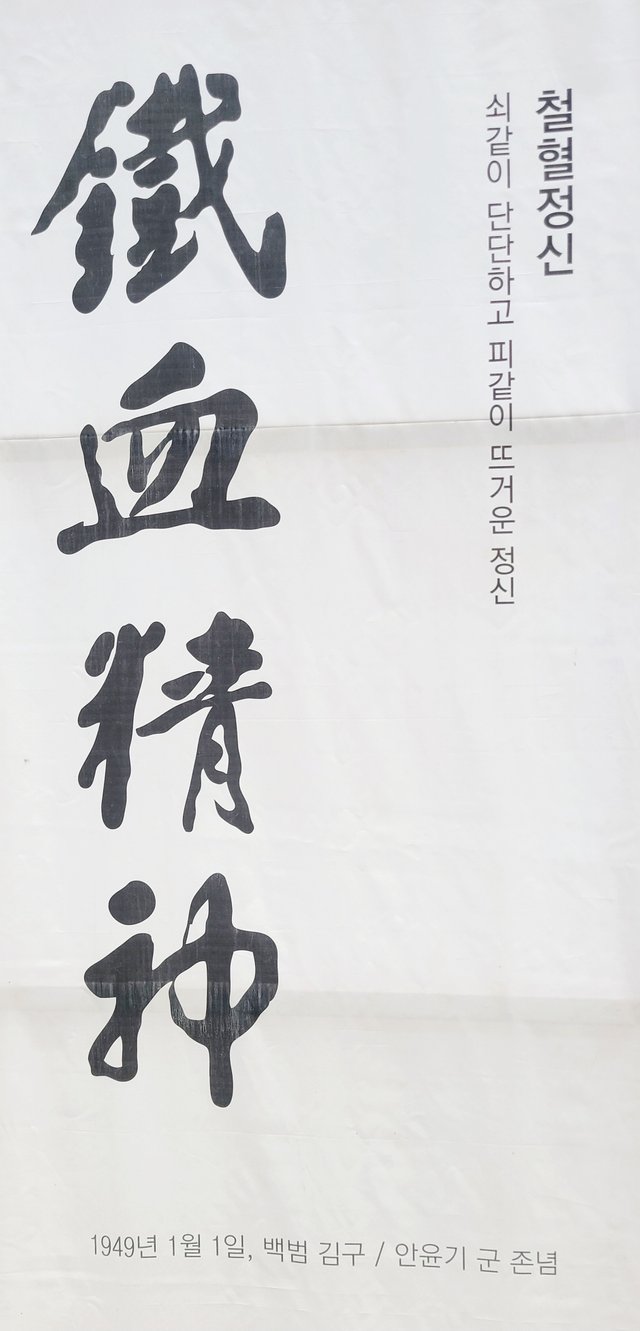 철혈정신
쇠같이 단단하고 피같이 뜨거운 정신
鐵血精神
1949년 1월 1일, 백범 김구 / 안윤기 군 존념